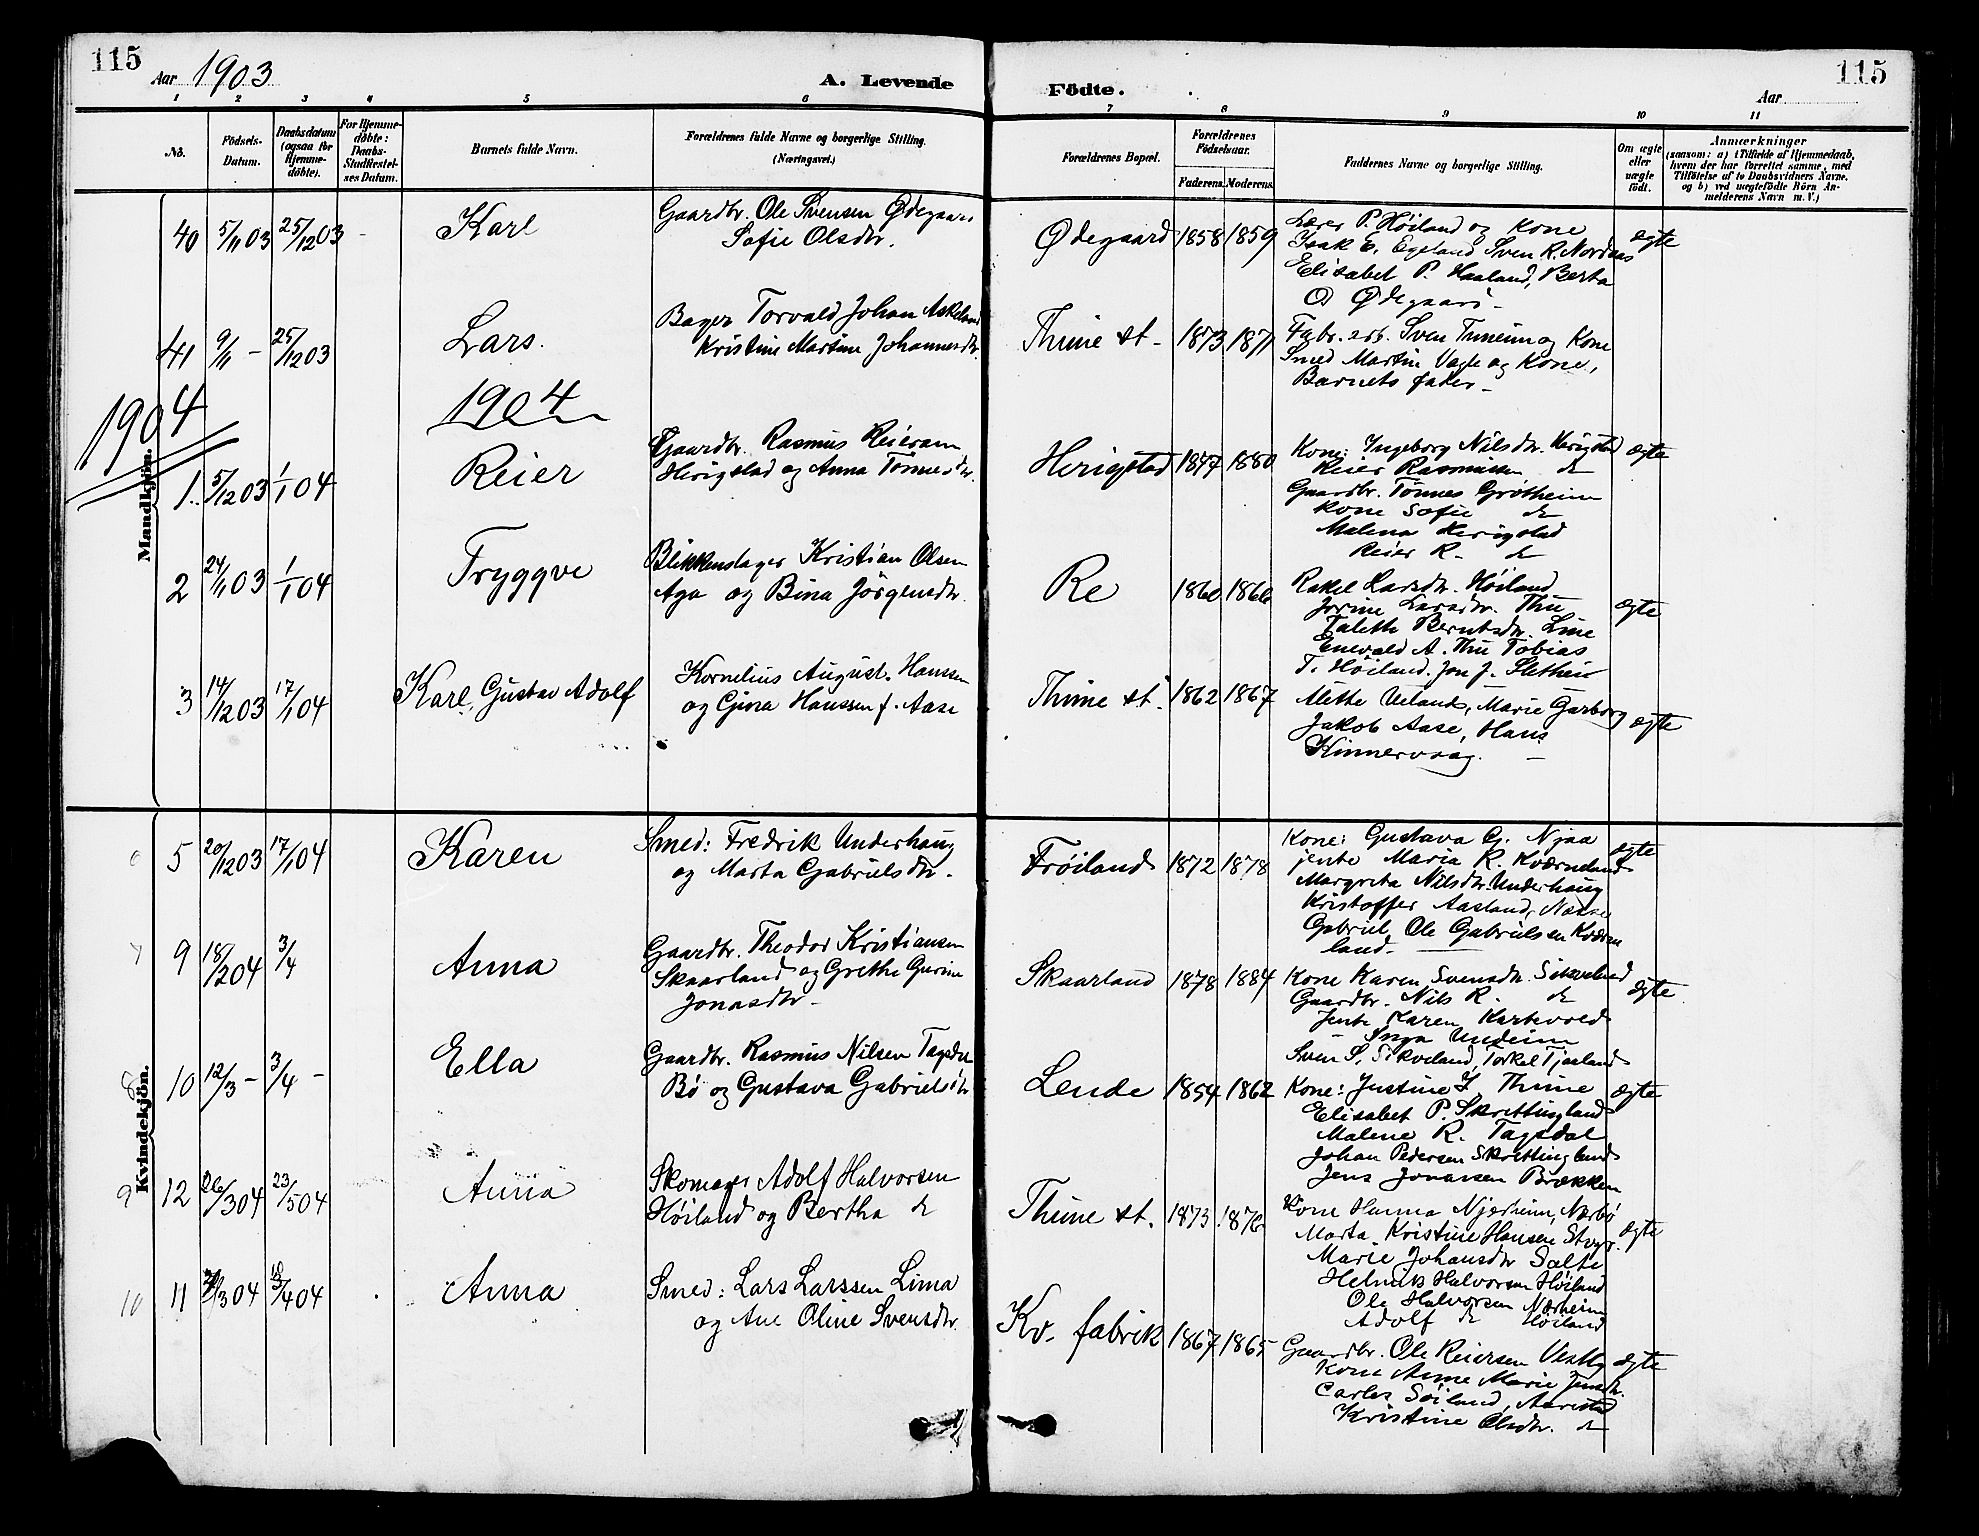 115
Aar 1903
A. Levende
Födte.
Aar
115
1 2 3 4 5 6 7 8 9 10 11
No.
Födsels-Datum.
Daabsdatum (ogsaa for Hjemme-döbte).
For Hjemme-döbte: Daabs-Stadfæstel-ses Datum.
Barnets fulde Navn.
Forældrenes fulde Navne og borgerlige Stilling. (Næringsvei.)
Forældrenes Bopæl.
Forældrenes Födselsaar.
Faderens. Moderens.
Faddernes Navne og borgerlige Stilling.
Om ægte eller uægte födt.
Anmærkninger
(saasom: a) i Tilfælde af Hjemmedaab, hvem der har forrettet samme, med Tilföielse af to Daabsvidners Navne. og b) ved uægtefödte Börn An-melderens Navn m. V.)
Mandkjön.
40 5/11 03 25/12 03 - Karl
Gaardbr. Ole Svensen Ødegaard
Sofie Olsdtr.
Ødegaard 1858 1859
Lærer P. Höiland og Kone
Isak E. Egeland Sven R. Nordaas
Elisabet P. Haaland, Berta
O Ødegaard -
ægte
41 9/11 - 25/12 03 Lars.
Bager Torvald Johan Askeland
Kristine Martine Johannesdtr.
Thime st. 1873 1871
Fabr. arb. Sven Trineim og Kone
Smed Martin Vagle og Kone,
Barnets fader -
1904
1904
1. 5/12 03 1/1 04 Reier
Gaardbr. Rasmus Reiersen
Herigstad og Anna Tønnesdtr.
Herigstad 1877 1880
Kone: Ingeborg Nilsdtr. Herigstad
Reier Rasmussen do
Gaardbr. Tönnes Grötheim
Kone Sofie do
Malena Herigstad
Reier R. do
ægte
2 24/11 03 1/1 04 Tryggve
Blikkenslager Kristian Olsen
Aga og Bina Jörgensdtr.
Re 1860 1866
Rakel Larsdtr. Höiland
Jorine Larsdtr. Thu
Talette Berntsdtr. Line
Enevald A. Thu Tobias
T. Höiland. Jon J. Sletheim
ægte
3 14/12 03 17/1 04 Karl Gustav Adolf
Kornelius August Hanssen
og Gina Hanssen f. Aase
Thime st. 1862 1867
Alette Ueland, Marie Garborg
Jakob Aase, Hans
Kinnervaag. -
ægte
Kvindekjön.
6 5 20/12 03 17/1 04 Karen
Smed: Fredrik Underhaug
og Marta Gabrielsdtr.
Fröiland 1872 1878
Kone: Gustava G. Njaa
jente Maria R. Kværneland
Margreta Nilsdtr. Underhaug
Kristoffer Aasland, Næsse
Gabriel, Ole Gabrielsen Kværne
land.
ægte
7 9 18/2 04 3/4 Anna
Gaardbr. Theodor Kristiansen
Skaarland og Grethe Gurine
Jonasdtr.
Skaarland 1878 1884
Kone Karen Svensdtr. Sikveland
Gaardbr. Nils R. do
Jente Karen Kartevold
Inga Undeim
Sven S. Sikveland, Torkel Tjaaland
ægte
8 10 12/3 - 3/4 - Ella
Gaardbr. Rasmus Nilsen Tagsdal
Bø og Gustava Gabrielsdtr
Lende 1854 1862
Kone: Justine J Thime
Elisabet P. Skrettingland
Malene R. Tagsdal
Johan Pedersen Skrettingland
Jens Jonassen Brække
ægte
9 12 26/3 04 23/5 04 Anna
Skomager Adolf Halvorsen
Höiland og Bertha do
Thime st. 1873 1876
Kone Hanna Njærheim, Nærbö
Marta Kristine Hansen Stvgr.
Marie Johansdtr Salte
Helmik Halvorsen Höiland
Ole Halvorsen Nærheim
Adolf do Höiland
ægte
10 11 3 04 4 04 Anna
Smed: Lars Larssen Lima
og Ane Oline Svensdtr.
Kv. fabrik 1867 1865
Gaardbr. Ole Reiersen Vestly
Kone Anne Marie
Carles Söiland,
Kristine Olsdtr. do
ægte